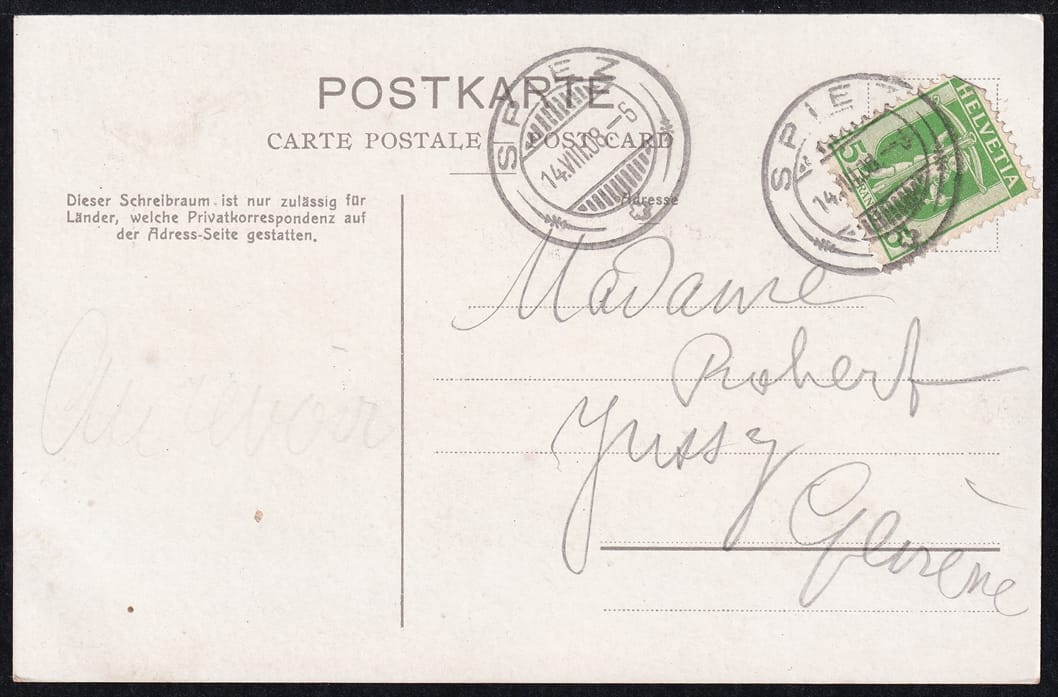 POSTKARTE
CARTE POSTALE — POST CARD
SPIEZ
14.VIII.08.–6
SPIEZ
14.VIII.08.
HELVETIA
5
5
Dieser Schreibraum ist nur zulässig für
Länder, welche Privatkorrespondenz auf
der Adress-Seite gestatten.
Adresse
Madame
Robert
Jussy
Genève
Au revoir